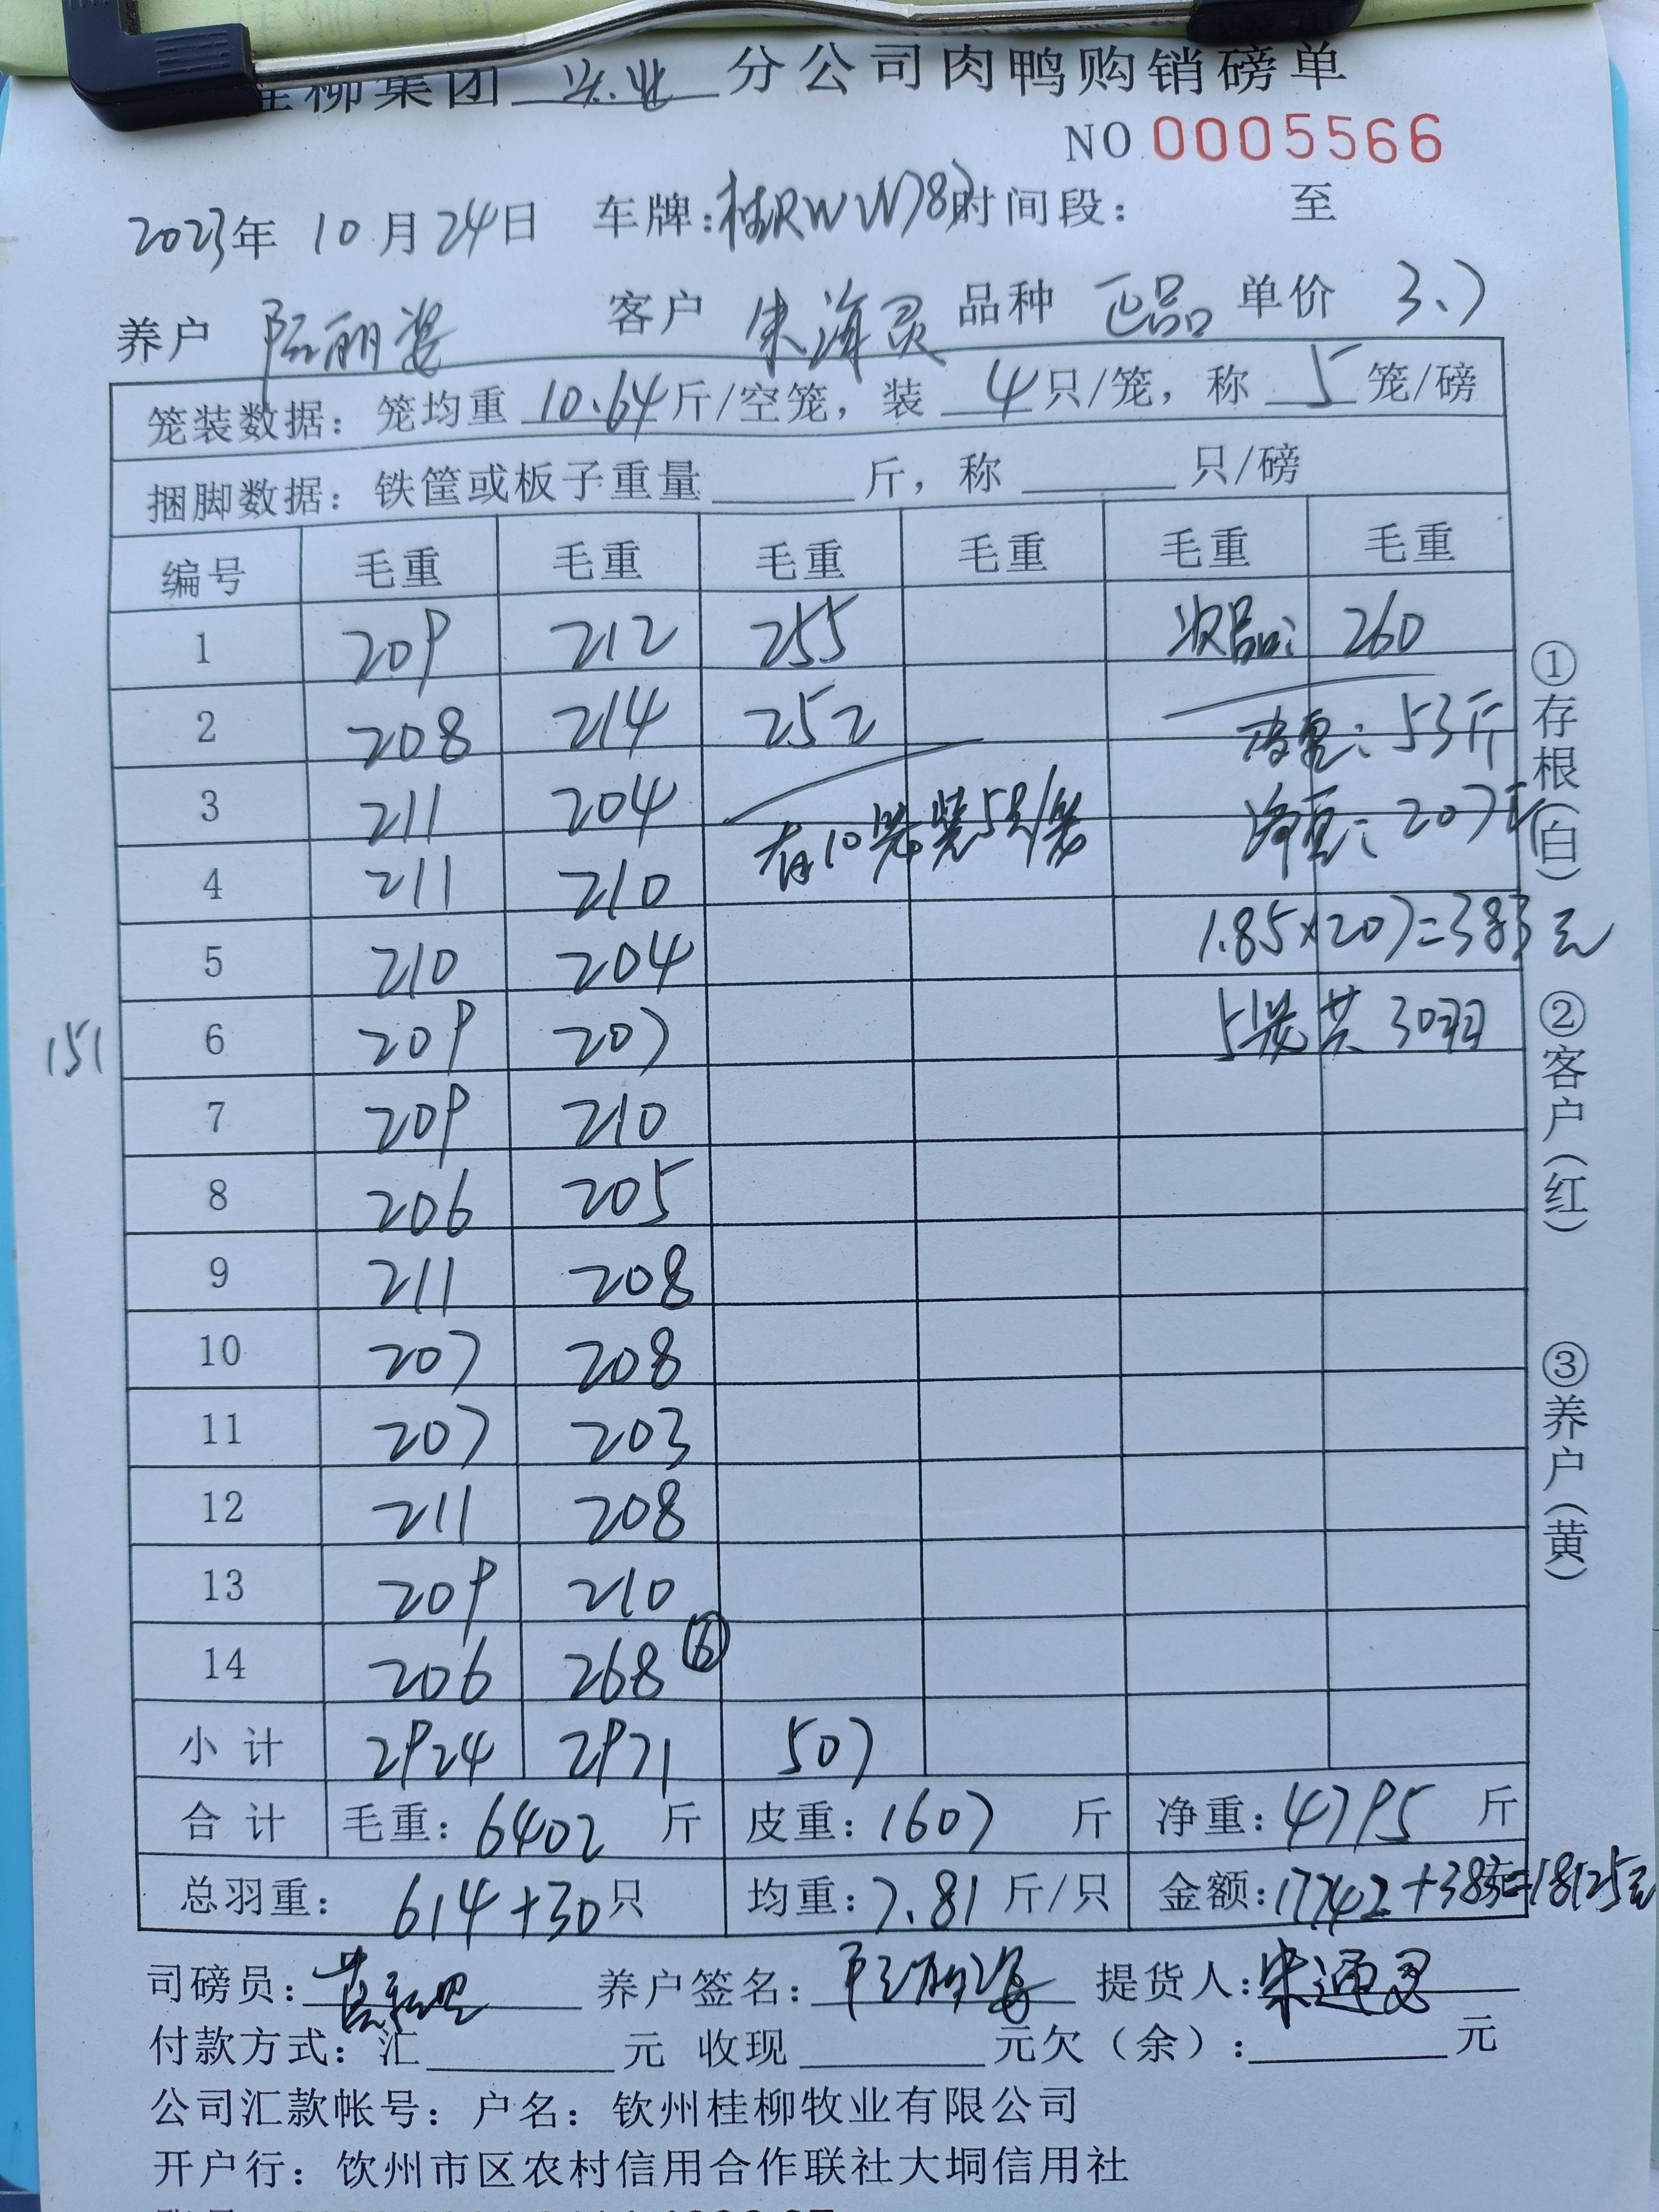 桂柳集团 兴业 分公司肉鸭购销磅单
NO 0005566
2023年 10月 24日 车牌:桂RWW783 时间段: 至
养户 陈丽 客户 朱海灵 品种 正品 单价 3.7
笼装数据: 笼均重 10.64 斤/空笼, 装 4 只/笼, 称 5 笼/磅
捆脚数据: 铁筐或板子重量 斤, 称 只/磅
编号 毛重 毛重 毛重 毛重 毛重 毛重
1 209 212 255 次品: 260
2 208 214 252 皮重: 53斤
3 211 204 有10笼装5只/笼 净重: 207斤
4 211 210
1.85×207=383元
5 210 204
151 6 209 207 5笼共30羽
7 209 210
8 206 205
9 211 208
10 207 208
11 207 203
12 211 208
13 209 210
14 206 268 ⑥
小计 2924 2971 507
合计 毛重: 6402 斤 皮重: 1607 斤 净重: 4795 斤
总羽重: 614+30只 均重: 7.81 斤/只 金额: 17742+383=18125元
①存根(白)
②客户(红)
③养户(黄)
司磅员: 养户签名: 提货人: 朱通灵
付款方式: 汇 元 收现 元欠(余): 元
公司汇款帐号: 户名: 钦州桂柳牧业有限公司
开户行: 钦州市区农村信用合作联社大垌信用社